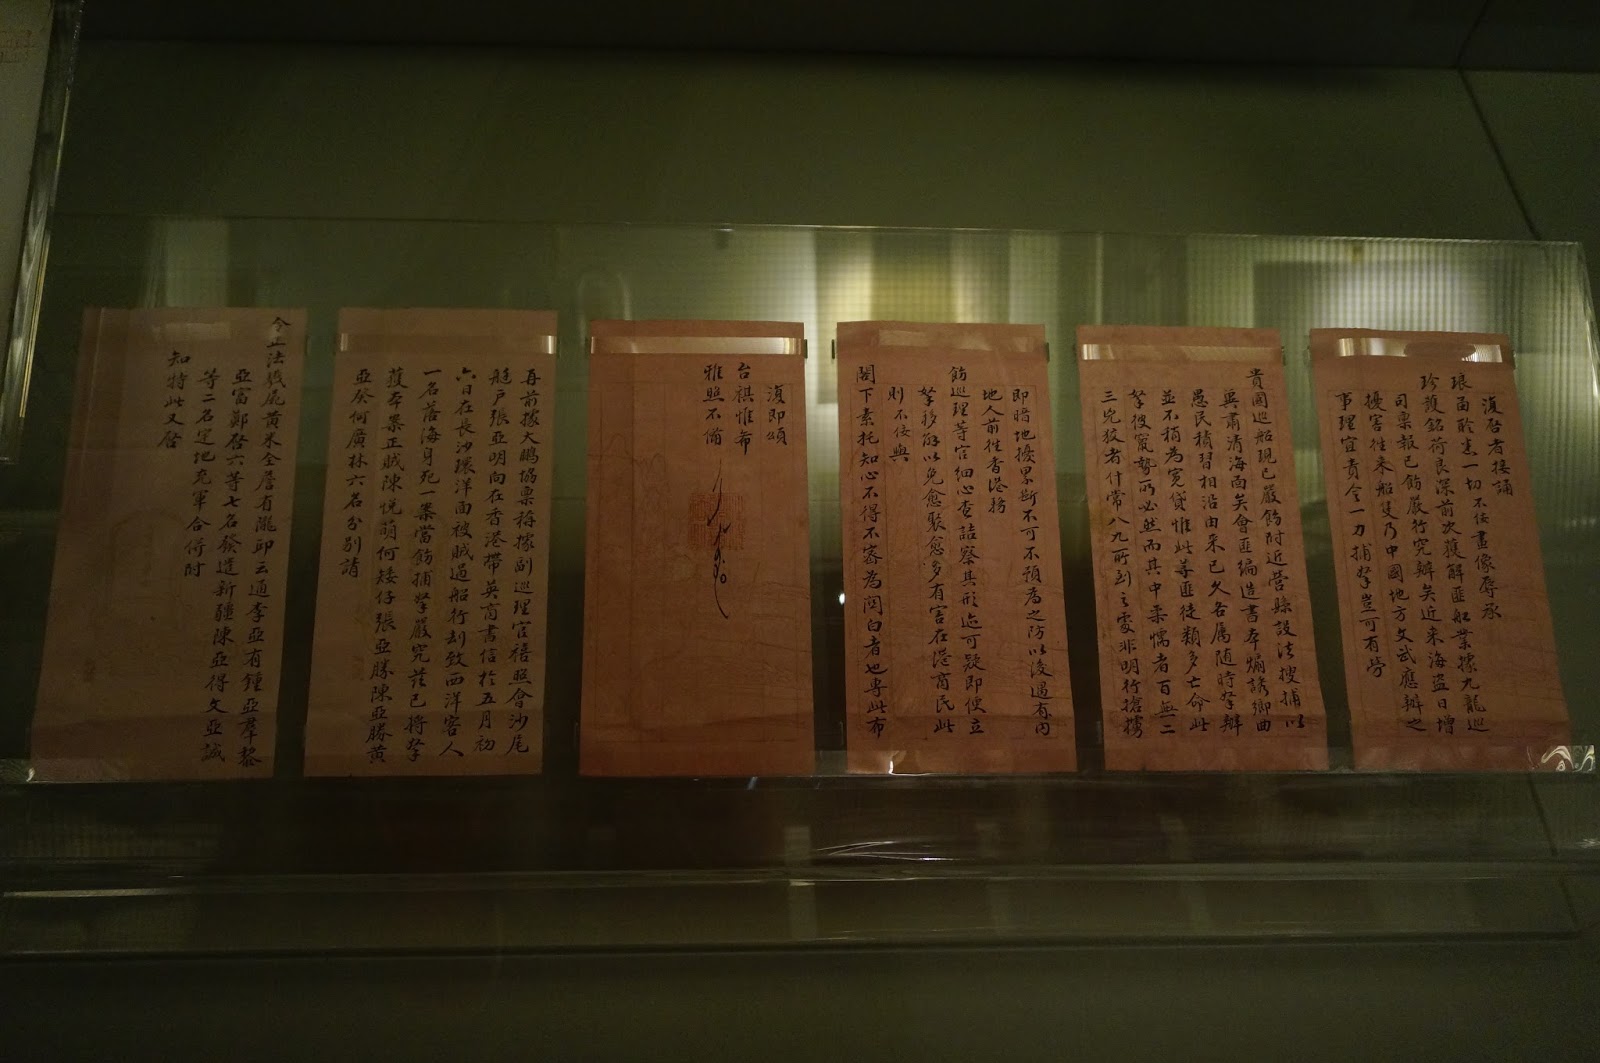 復啓者接誦
琅函聆悉一切不佞畫像辱承
珍護銘荷良深前次獲解匪船業據九龍巡
司稟報已飭嚴行究辦矣近來海盜日增
擾害往來船隻乃中國地方文武應辦之
事理宜責令一力捕拏豈可有勞
貴國巡船現已嚴飭附近營縣設法搜捕以
冀肅清海面矣會匪編造書本煽誘鄉曲
愚民積習相沿由來已久各屬隨時拏辦
並不稍為寬貸惟此等匪徒類多亡命此
拏彼竄勢所必然而其中柔懦者百無二
三兇狡者什常八九所到之處非明行搶擄
即暗地擾累斷不可不預為之防以後遇有內
地人前往香港務
飭巡理等官細心查詰察其形迹可疑即便立
拏移解以免愈聚愈多有害在港商民此
則不佞與
閣下素托知心不得不密為關白者也專此布
復即頌
台祺惟希
雅照不備
再前據大鵬協稟稱據副巡理官禧照會沙尾
艇戶張亞明向在香港帶英商書信於五月初
六日在長沙環洋面被賊過船行刧致西洋客人
一名落海身死一案當飭捕拏嚴究茲已將拏
獲本案正賊陳悅萌何矮仔張亞勝陳亞勝黃
亞癸何廣林六名分別請
令正法
亞富鄭啓六等七名發遣新疆陳亞得文亞誠
等二名定地充軍合併附
知特此又啓